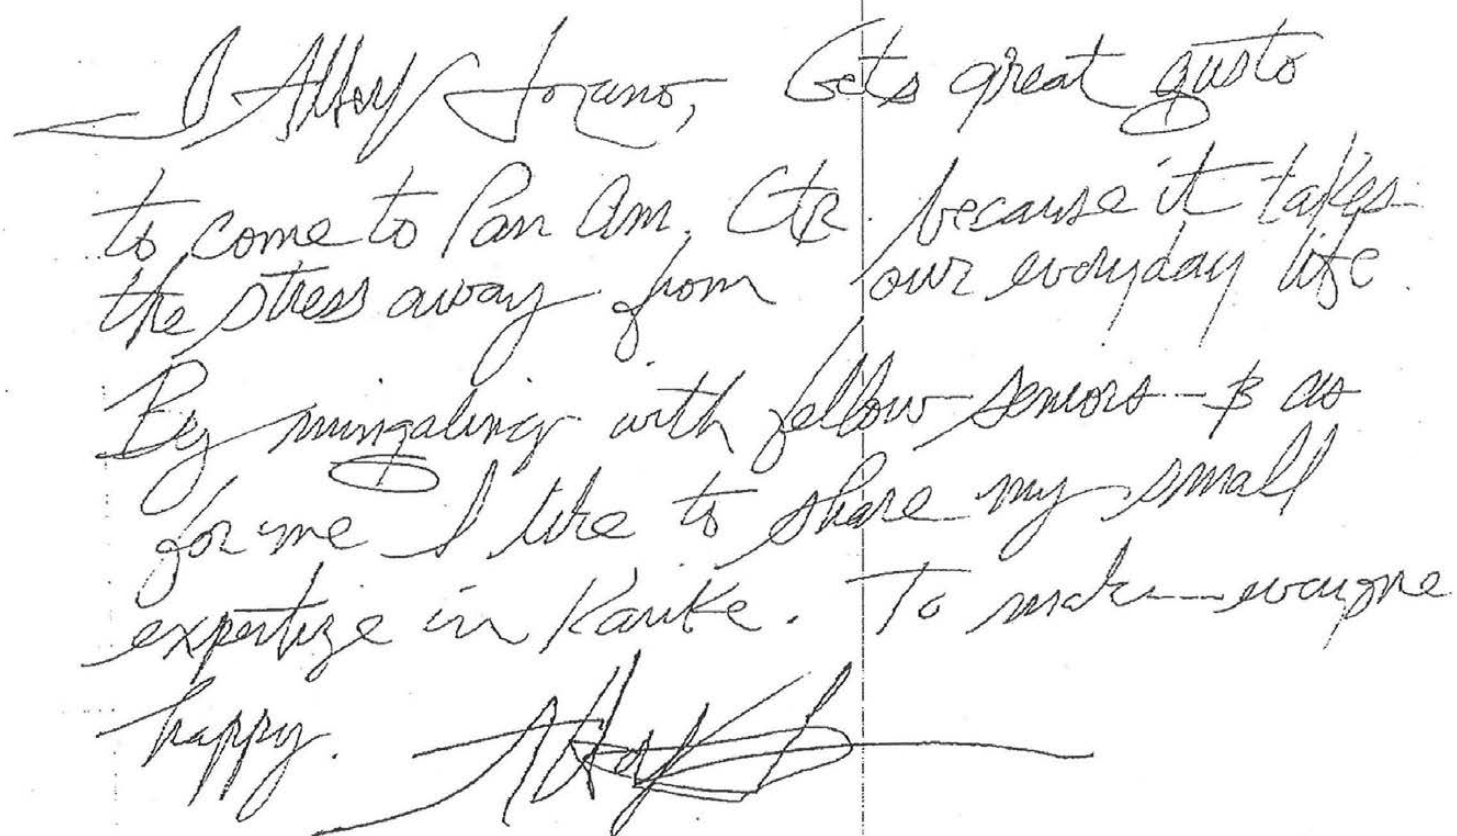 I Gets great gusto
to come to Pan Am. Ctr. because it takes
the stress away from our everyday life.
By mingaling with fellow seniors - & as
for me I like to share my small
expertize in . To make everyone
happy.